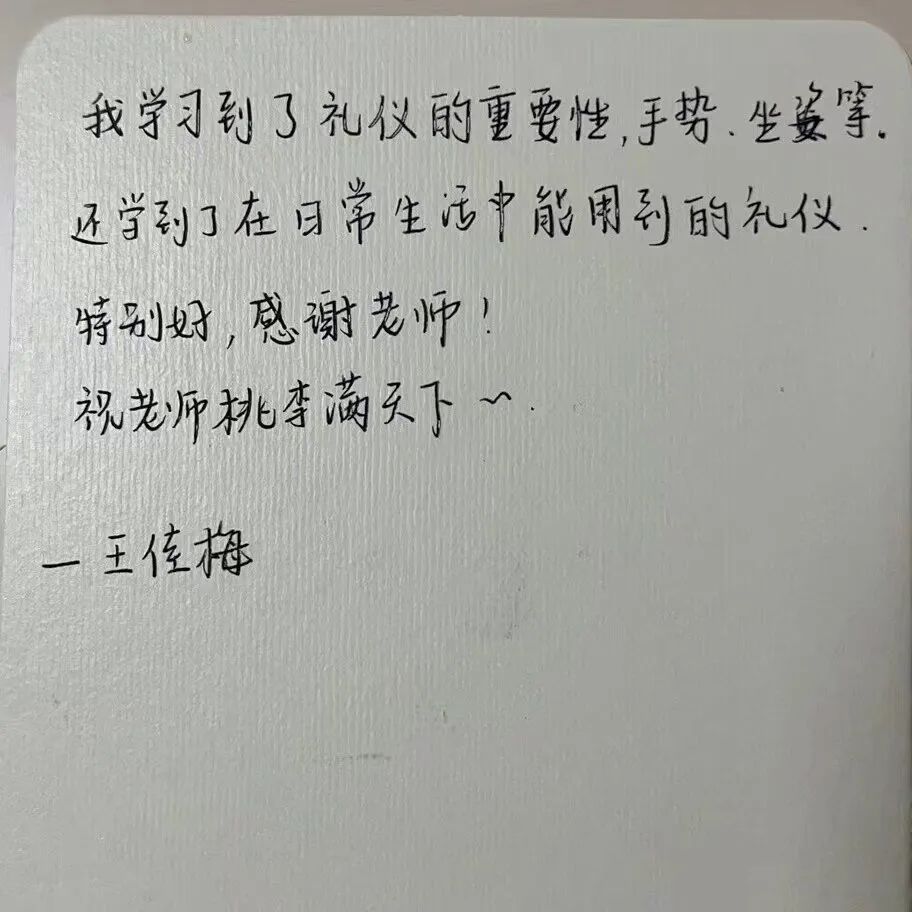 我学习到了礼仪的重要性,手势.坐姿等.
还学到了在日常生活中能用到的礼仪.
特别好,感谢老师!
祝老师桃李满天下~.
—王佳梅